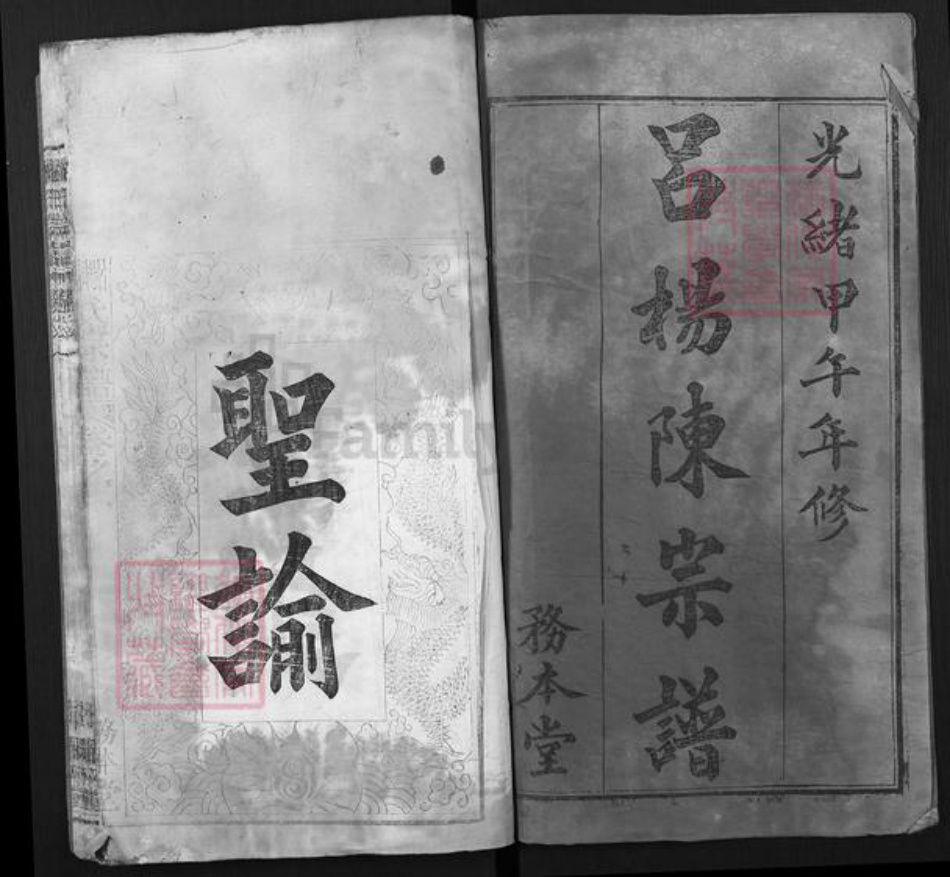 光緒甲午年修
呂楊陳宗譜
務本堂
聖諭
Family